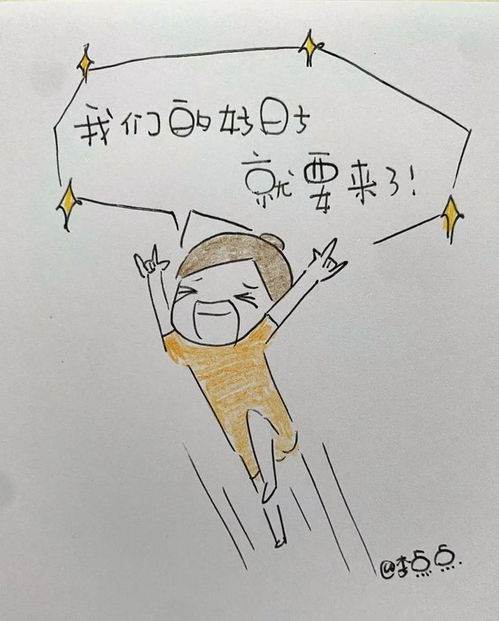 我们的好日子
就要来了!
@李点点.